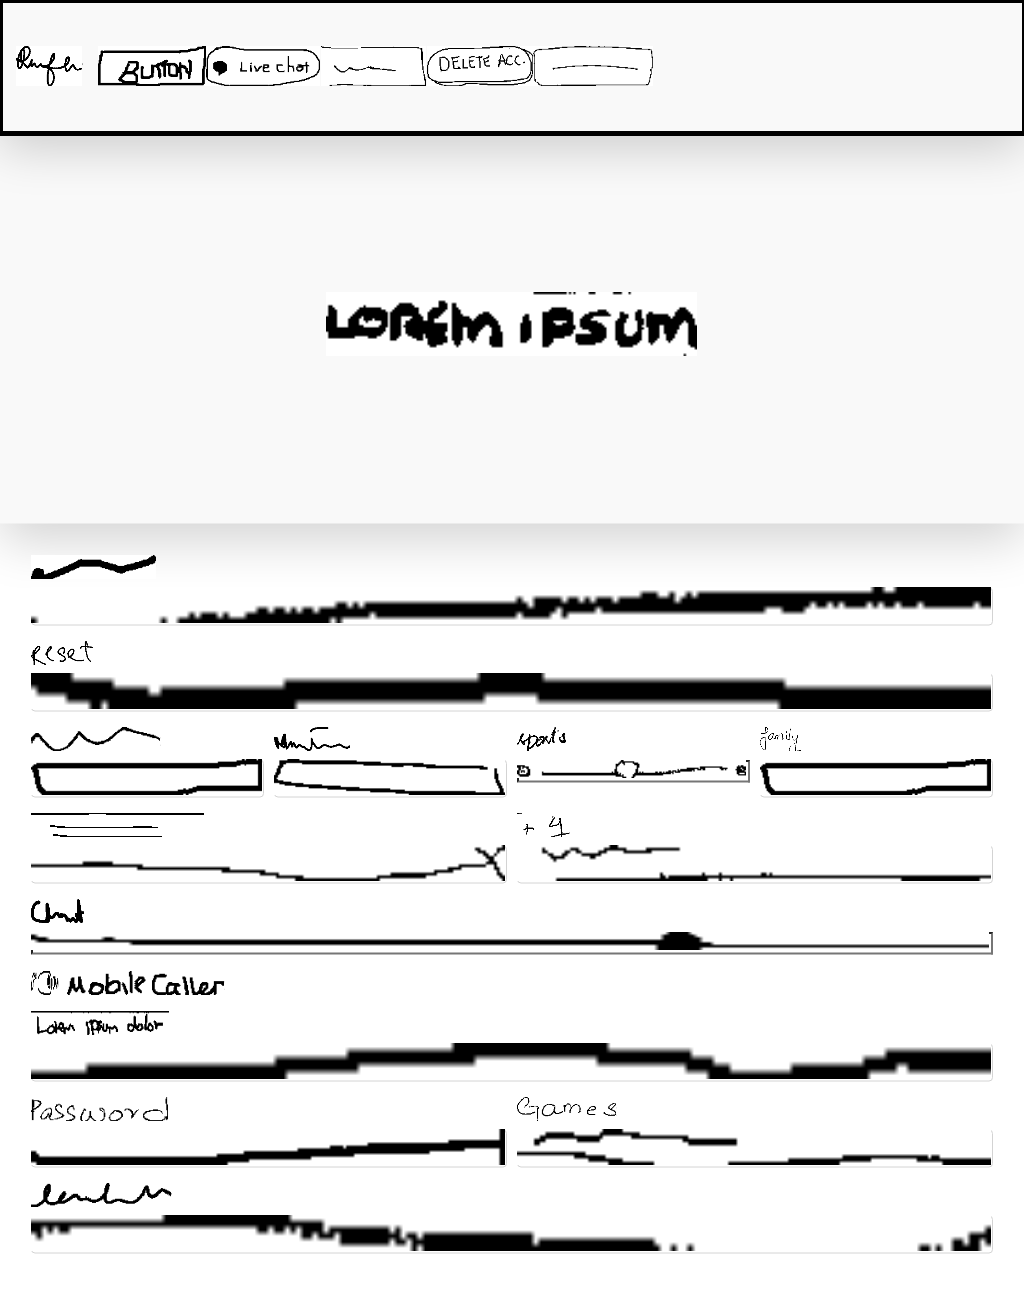 BUTTON Live chat DELETE ACC.
LOREM IPSUM
Reset
sports family
+ 4
Chat
Mobile Caller
Lorem ipsum dolor
Password Games